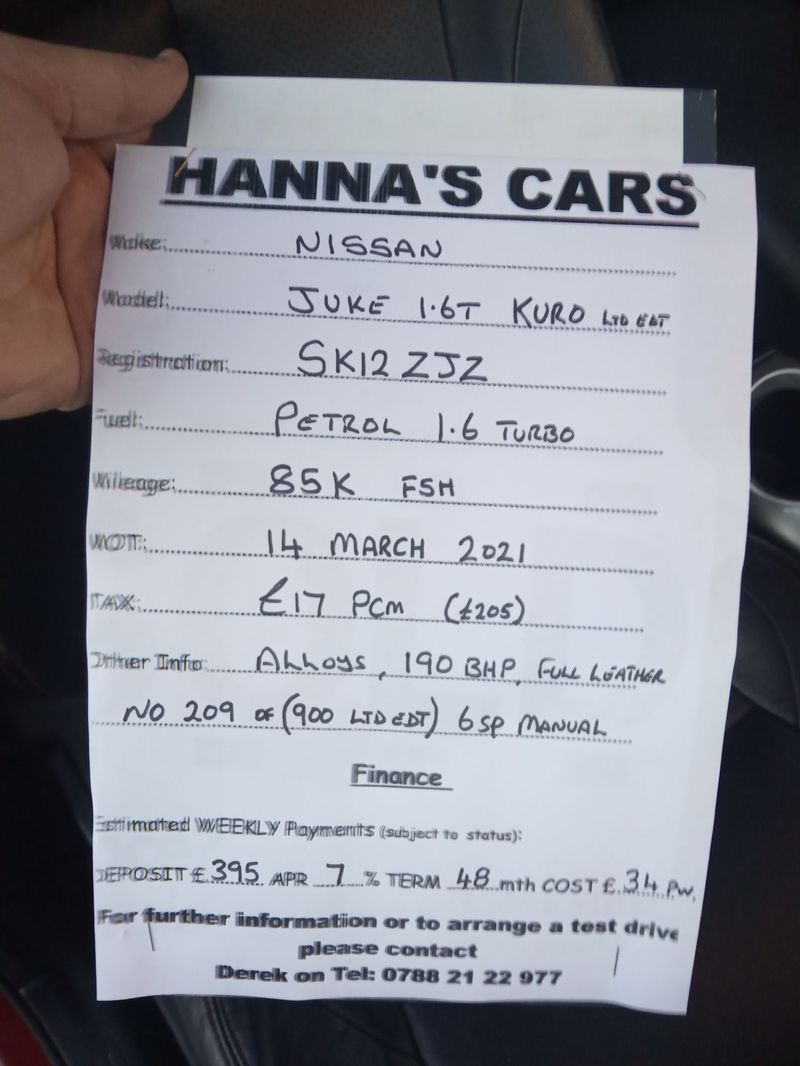 HANNA'S CARS
Make: NISSAN
Model: JUKE 1.6T KURO LTD EDT
Registration: SK12 ZJZ
Fuel: PETROL 1.6 TURBO
Mileage: 85K FSH
MOT: 14 MARCH 2021
TAX: £17 PCM (£205)
Other Info: ALLOYS, 190 BHP, FULL LEATHER
NO 209 OF (900 LTD EDT) 6 SP MANUAL
Finance
Estimated WEEKLY Payments (subject to status):
DEPOSIT £ 395 APR 7 % TERM 48 mth COST £ 34 PW.
For further information or to arrange a test drive
please contact
Derek on Tel: 0788 21 22 977